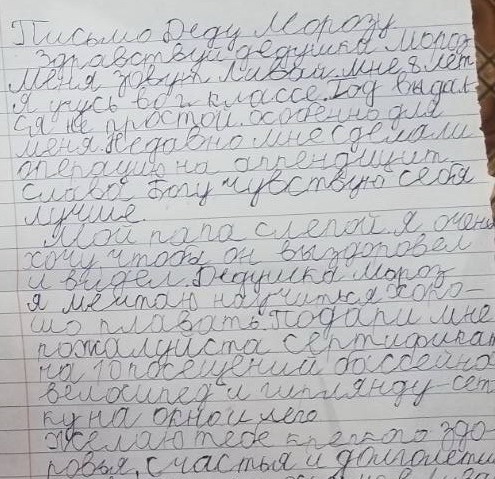 Письмо Деду Морозу
Здравствуй дедушка Мороз
меня зовут Ливай мне 8 лет
Я учусь во 2 классе. Год выдал-
ся не простой особенно для
меня. Недавно мне сделали
операцию на аппендицит
Слава Богу чувствую себя
лучше.
Мой папа слепой я очень
хочу, чтобы он выздоровел
и видел. Дедушка Мороз
я мечтаю научиться хоро-
шо плавать. Подари мне
пожалуйста сертификат
на 10 посещений бассейна
велосипед и гирлянду-сет
ку на окно и лего
Желаю тебе крепкого здо-
ровья, счастья и долголетия